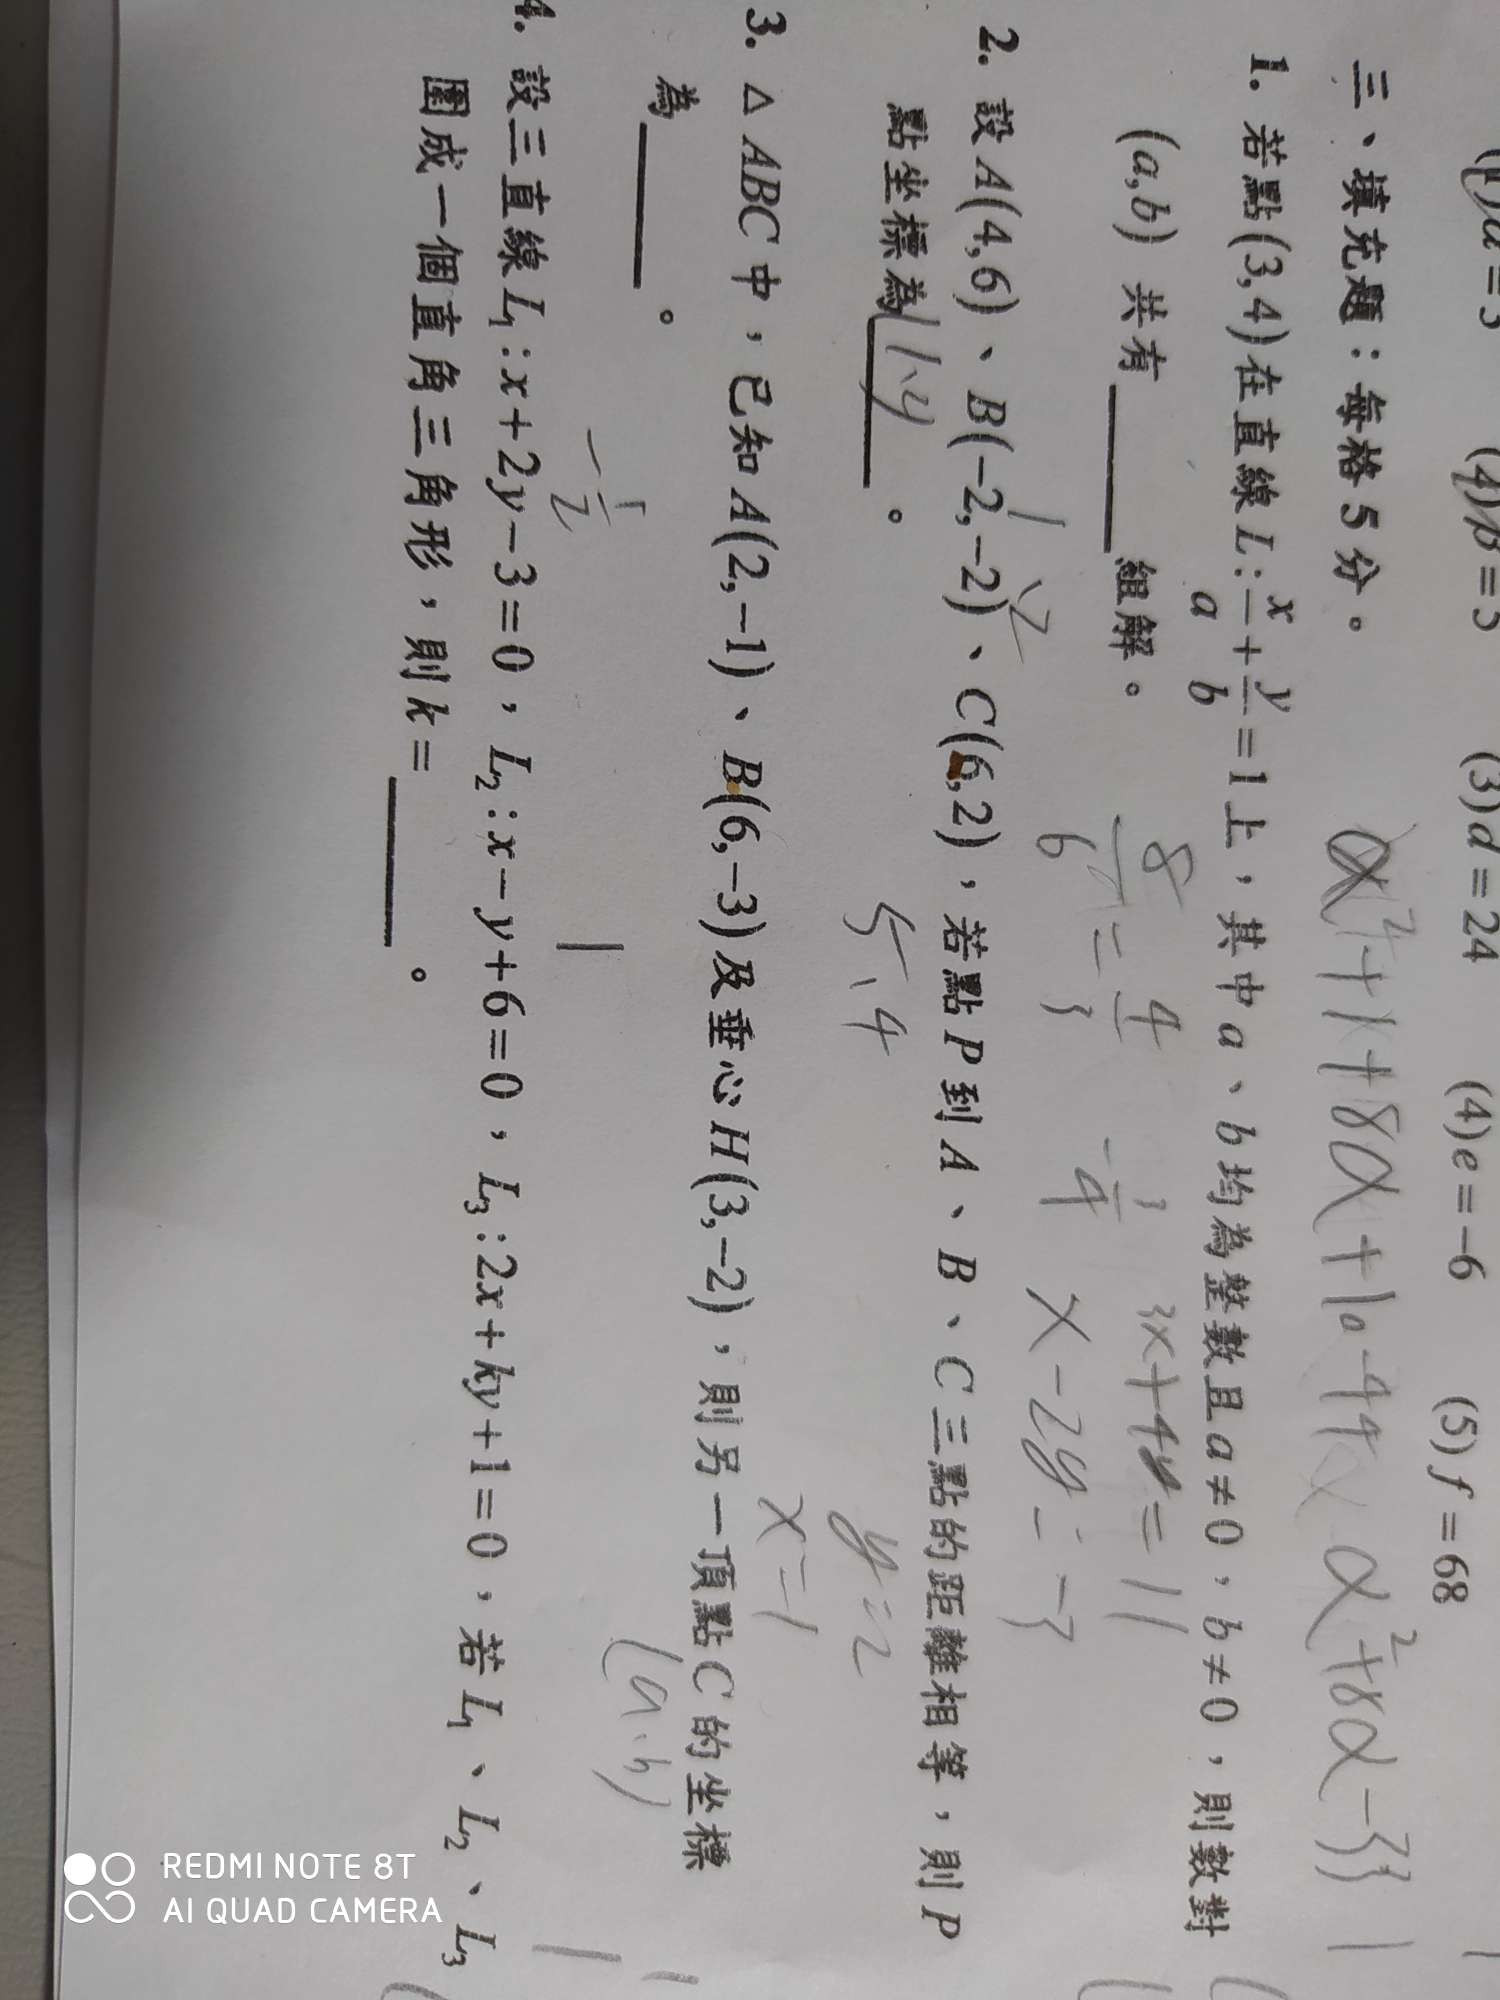 (4)b=5
(3)d=24
(4)e=-6
(5)f=68
三、填充題：每格5分。
α²+8α-33
1. 若點(3,4)在直線L:x/a+y/b=1上，其中a、b均為整數且a≠0，b≠0，則數對
(a,b)共有____組解。
8/6=4/3
3x+4y=11
x-2y=-3
2. 設A(4,6)、B(-2,-2)、C(6,2)，若點P到A、B、C三點的距離相等，則P
點坐標為____。
5,4
y=2
x=1
3. △ABC中，已知A(2,-1)、B(6,-3)及垂心H(3,-2)，則另一頂點C的坐標
為____。
(a,b)
-1/2
1
4. 設三直線L₁:x+2y-3=0，L₂:x-y+6=0，L₃:2x+ky+1=0，若L₁、L₂、L₃
圍成一個直角三角形，則k=____。
REDMI NOTE 8T
AI QUAD CAMERA